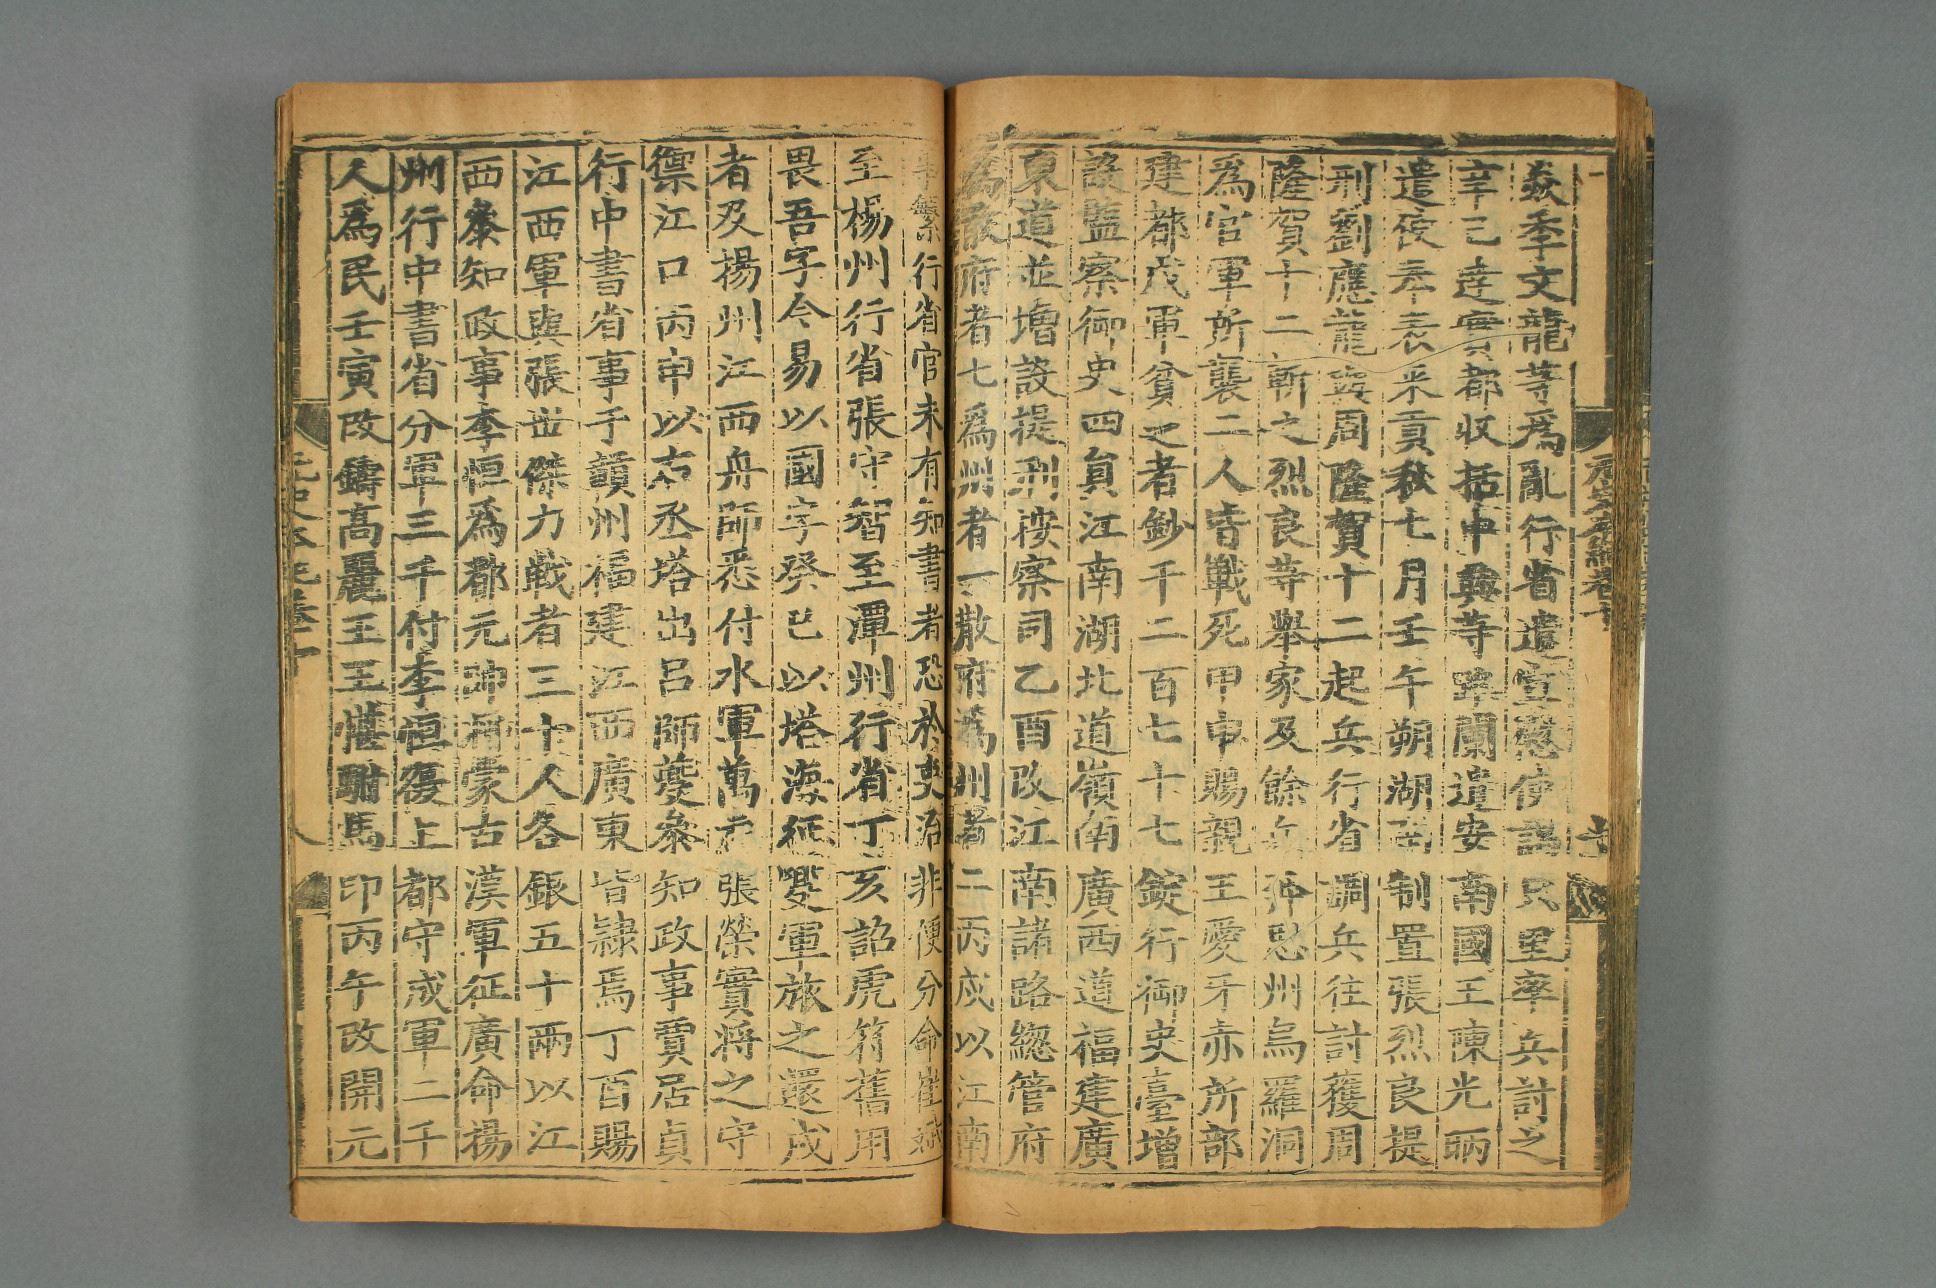 焱季文龍等爲亂行省遣宣慰使謁只里率兵討之
辛巳達實都收括中興等路闌遣安南國王陳光昞
遣使奉表來貢秋七月壬午朔湖南制置張烈良提
刑劉應龍與周隆賀十二起兵行省調兵往討獲周
隆賀十二斬之烈良等舉家及餘兵奔思州烏羅洞
爲官軍所襲二人皆戰死甲申賜親王愛牙赤所部
建都戍軍貧乏者鈔千二百七十七錠行御史臺增
設監察御史四員江南湖北道嶺南廣西道福建廣
東道並增設提刑按察司乙酉改江南諸路總管府
爲散府者七爲州者一散府爲州者二丙戌以江南
事繁行省官未有知書者恐於吏治非便分命崔斌
至楊州行省張守智至潭州行省丁亥詔虎符舊用
畏吾字今易以國字癸巳以塔海征夔軍旅之還戍
者及揚州江西舟師悉付水軍萬戶張榮實將之守
禦江口丙申以右丞塔出呂師夔參知政事賈居貞
行中書省事于贛州福建江西廣東皆隸焉丁酉賜
江西軍與張世傑力戰者三十人各銀五十兩以江
西參知政事李恒爲都元帥將蒙古漢軍征廣命揚
州行中書省分軍三千付李恒復上都守戍軍二千
人爲民壬寅改鑄高麗王王愖駙馬印丙午改開元